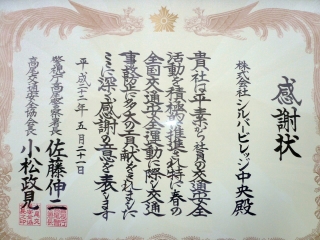 感謝状
株式会社シルバービレッジ中央殿
貴社は平素から一貫の交通安全
活動を積極的に推進され特に春の
全国交通安全運動に際し交通
事故防止に多大の貢献をされました
ここに深く感謝の意を表します
平成二十二年五月二十一日
警視庁高尾警察署長 佐藤伸二
高尾交通安全協会長 小松政見